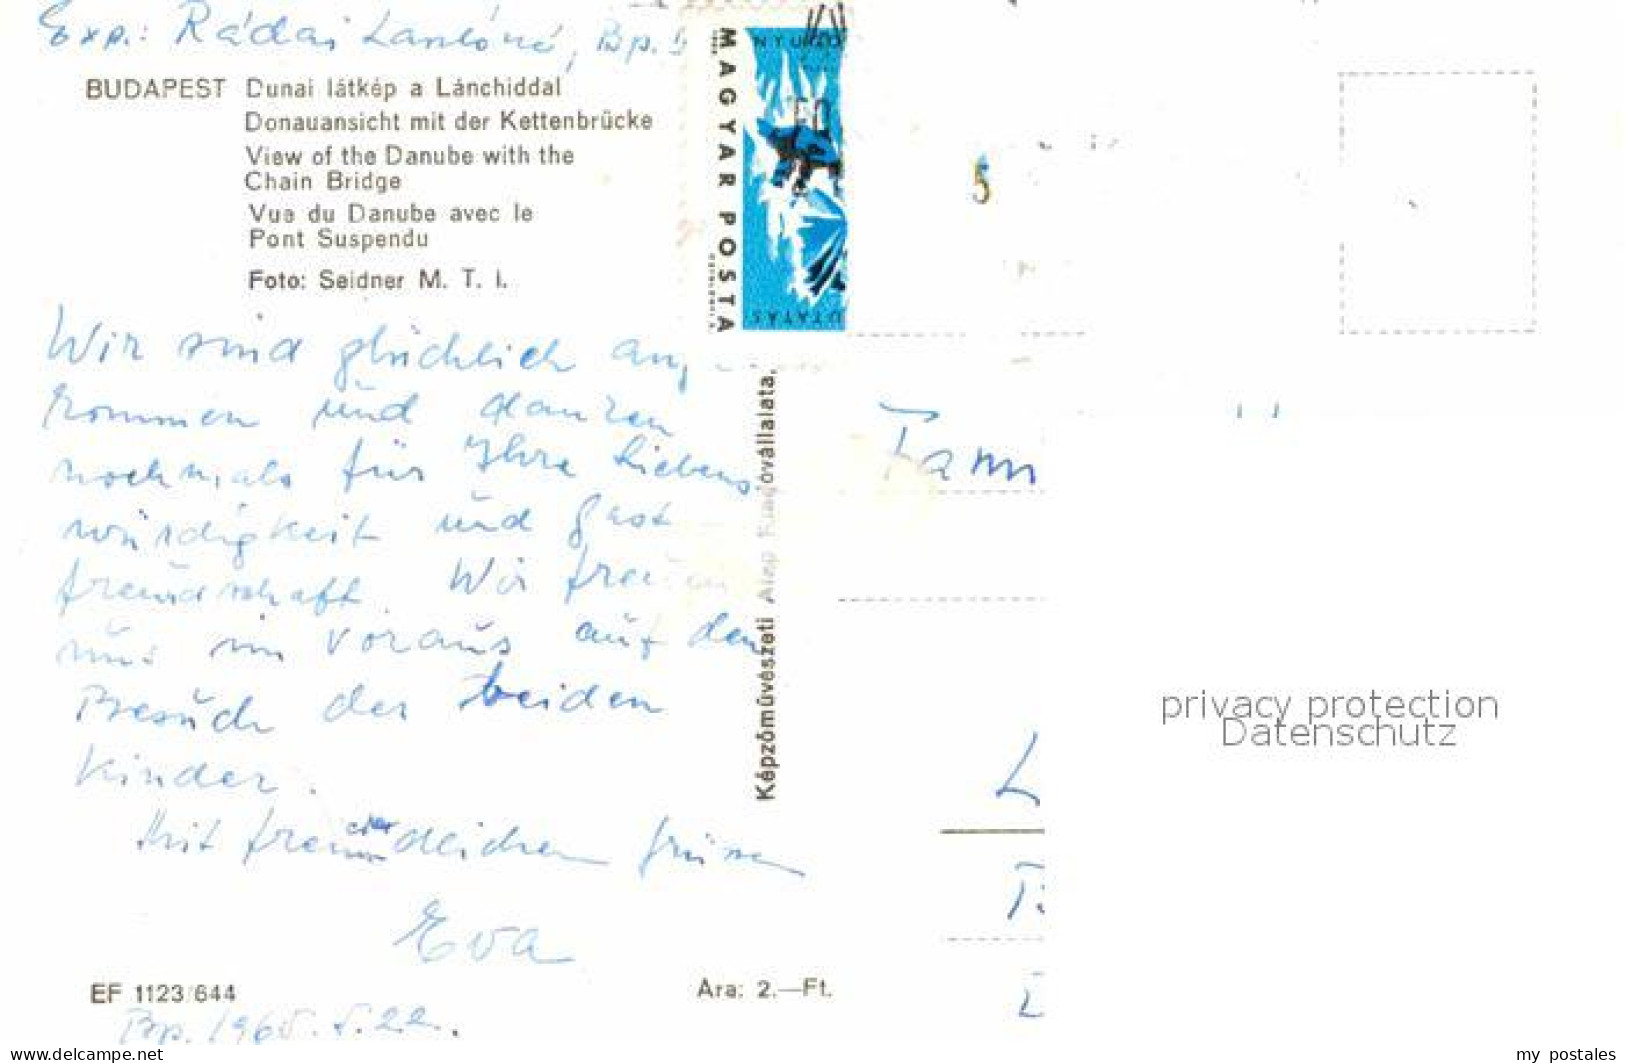 Exp.: Rádai Lászlóné, Bp.
BUDAPEST Dunai látkép a Lánchiddal
Donauansicht mit der Kettenbrücke
View of the Danube with the
Chain Bridge
Vue du Danube avec le
Pont Suspendu
Foto: Seidner M. T. I.
MAGYAR POSTA
5
Wir sind glücklich ange
kommen und danken
nochmals für Ihre Liebens
würdigkeit und Gast
freundschaft. Wir freuen
uns im voraus auf den
Besuch der beiden
Kinder.
Mit freundlichen Grüssen
Eva
EF 1123/644
Ara: 2.—Ft.
Bp. 1965. 5. 22.
Képzőművészeti Alap Kiadóvállalata,
Fam
privacy protection
Datenschutz
delcampe.net
my_postales